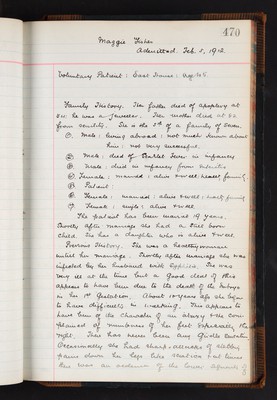 470
Maggie Fisher
Admitted. Feb. 5, 1912.
Voluntary Patient: East House: Age: 45.
Family History. The father died of apoplexy at
he was a Jeweller. The mother died at 82
from senility. She is the 5th of a family of seven.
① Male: living abroad: not much known about
him: not very successful.
② Male: died of Scarlet Fever in infancy
③ Male: died in infancy from
④ Female: married: alive & well: healthy family
⑤ Patient:
⑥ Female: married: alive & well: family
⑦ Female: single: alive & well
The patient has been married 19 years.
Shortly after marriage she had a still born
child. She has a daughter who is alive & well.
Previous History. She was a healthy woman
until her marriage. Shortly after marriage she was
infected by her husband with Syphilis. She was
very ill at the time but a good deal of this
appears to have been due to the death of the
in her 1st Gestation. About years ago she began
to have difficulty in walking. This appears to
have been of the character of an ataxy & she com-
plained of numbness of her feet especially the
right. There has never been any Girdle sensation
Occasionally she had sharp attacks of
pains down her legs like sciatica & at times
there was an oedema of the lower